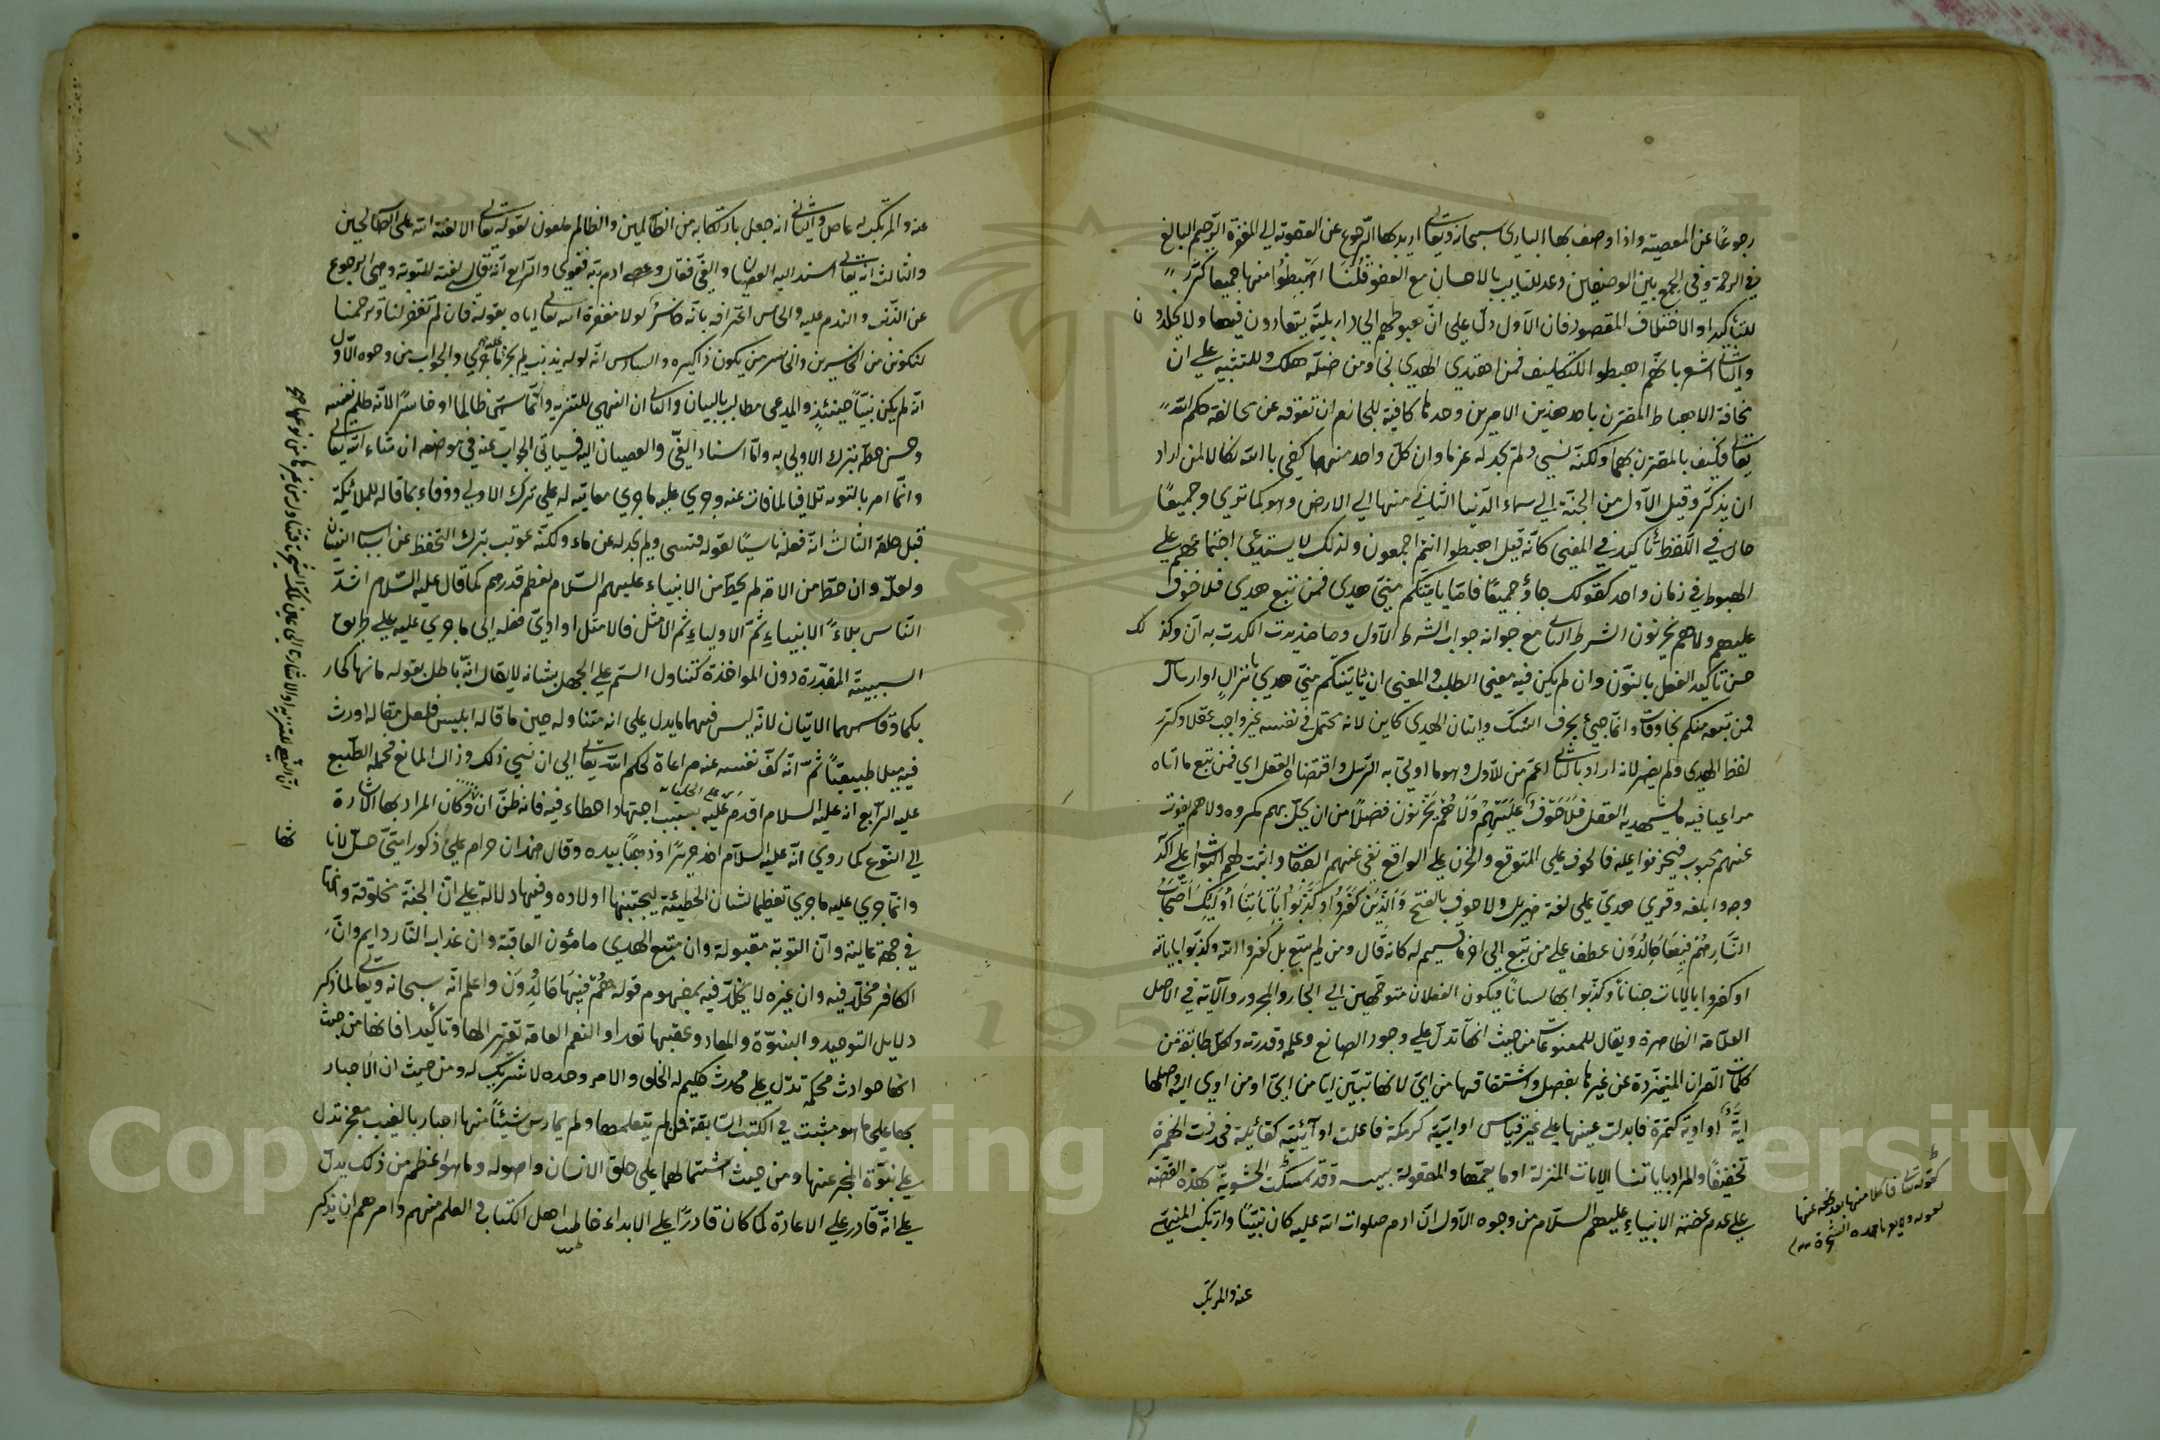 رجوعًا عن المعصية واذا وصف بها الباري سبحانه وتعالى اريد بها الرّجوع عن العقوبة الي المغفرة الرّحيم البالغ
في الرحمة وفي الجمع بين الوصفين وعد للتايب بالاحسان مع العفو قُلْنَا اهْبِطُوا منها جميعا كرّر
للتأكيد او الاختلاف المقصود فان الاول دلّ علي انّ هبوطهم الي دار بليّة يتعادون فيها ولا يخلدون
والثاني اشعر بانهّم اهبطو اللتكليف فمن اهتدي الهدي نجا ومن ضلّه هلك وللتنبيه علي ان
مخافة الاهباط المقترن باحد هذين الامرين وحدها كافية للحازم ان تعوقه عن مخالفة حكم اللّه
تعالى فكيف بالمقترن بهما ولكنّه نسي ولم نجد له عزما وان كلّ واحد منهما كفي به نكالا لمن اراد
ان يذكّر وقيل الاول من الجنّة الي سماء الدّنيا الثاني منها الي الارض وهو كما تري وجميعًا
حال في اللّفظ تأكيد في المعني كانّه قيل اهبطوا انتم اجمعون ولذلك لا يستدعي اجتماعهم علي
الهبوط في زمان واحد كقولك جاؤ جميعًا فامّا يأتينّكم منّي هدي فمن تبع هدي فلا خوف
عليهم ولا هم يحزنون الشرط الثاني مع جوابه جواب الشرط الاول وما مزيدة اكّدت به ان ولذلك
حسن تأكيد الفعل بالنّون وان لم يكن فيه معني الطلب والمعني ان يأتينّكم منّي هدي بانزال او ارسال
فمن تبعه منكم نجا وفاز وانما جيئ بحرف الشكّ واتيان الهدي كاين لانه محتمل في نفسه غير واجب عقلا وكرّر
لفظ الهدي ولم يضمر لانه اراد بالثاني اعمّ من الاول وهو ما اوتي به الرّسل واقتضاه العقل اي فمن تبع ما اتاه
مراعيا فيه ما يشهد به العقل فَلَا خَوْفٌ عَلَيْهِمْ وَلَا هُمْ يَحْزَنُون فضلا من ان يحلّ بهم مكروه ولا هم يفوت
عنهم محبوب فيحزنوا عليه فالخوف علي المتوقع والحزن علي الواقع نفي عنهم العقاب واثبت لهم الثواب علي آكد
وجه وابلغه وقري هديّ علي لغة هذيل ولا خوف بالفتح وَالَّذِينَ كَفَرُوا وَكَذَّبُوا بِآيَاتِنَا أُولَٰئِكَ أَصْحَابُ
النَّارِ هُمْ فِيهَا خَالِدُونَ عطف علي من تبع الي اخره قسيم له كانه قال ومن لم يتبع بل كفروا بالله وكذّبوا باياته
او كفروا بالايات جنانا وكذّبوا بها لسانًا فيكون الفعلان متوجّهين الي الجار والمجرور والآية في الاصل
العلامة الظاهرة ويقال للمصنوعات من حيث انها تدلّ علي وجود الصانع وعلمه وقدرته ولكل طائفة من
كلمات القران المتميّزة عن غيرها بفصل واشتقاقها من ايّ لانها تبيّن ايا من ايّ او من اوي اليه واصلها
ايّة او اوية كتمرة فابدلت عينها علي غير قياس او اييّة كرمكة فاعلت او آئيّة كقائلة فحذفت الهمزة
تخفيفًا والمراد باياتنا الايات المنزلة او ما يعمّها والمعقولة وقد تمسّكت الحشويّة بهذه القصّة
علي عدم عصمة الانبياء عليهم السلام من وجوه الاول ان ادم صلوات الله عليه كان نبيًا وارتكب المنهيّ
عنه والمرتكب
كقوله تعالى فاكلا منها بعد نهيه عنها
بقوله ولا تقربا هذه الشجرة
عنه والمرتكب له عاص والثاني انه جعل بارتكابه من الظالمين والظالم ملعون لقوله تعالى الا لعنة الله علي الظالمين
والثالث انّه تعالى اسند اليه العصيان والغيّ فقال وعصي ادم ربّه فغوي والرّابع انه تعالى لقنه التوبة وهي الرجوع
عن الذنب والندم عليه والخامس اعترافه بانّه خاسر لولا مغفرة الله تعالى اياه بقوله فان لم تغفر لنا وترحمنا
لنكونن من الخاسرين والخاسر من يكون ذا كبيره والسادس انّه لو لم يذنب لم يجر عليه ما جري والجواب من وجوه الاول
انّه لم يكن نبيّا حينئذٍ والمدعي مطالب بالبيان والثاني ان النهي للتنزيه وانّما سمّي ظالما او خاسرًا لانّه ظلم نفسه
وخسر حظّه بترك الاولي به وامّا اسناد الغيّ والعصيان اليه فسيأتي الجواب عنه في موضعه ان شاء الله تعالى
وانّما امر بالتوبة تلافيا لما فات عنه وجري عليه ما جري معاتبة له علي ترك الاولي ووفاء بما قاله للملائكة
قبل خلقه الثالث انّه فعله ناسيًا لقوله فنسي ولم نجد له عزما ولكنّه عوتب بترك التحفظ عن اسباب النسيان
ولعلّه وان حطّ من الامّة لم يحطّ من الانبياء عليهم السّلام لعظم قدرهم كما قال عليه السّلام اشدّ
النّاس بلاءً الانبياء ثمّ الاولياء ثم الامثل فالامثل او ادّي فعله الي ما جري عليه علي طريق
السببية المقدّرة دون المواخذة كتناول السّم علي الجهل بشانه لا يقال انّه باطل بقوله ما نهاكما ر
بكما وقاسمهما الايتان لانّه ليس فيهما ما يدل علي انه متناوله حين ما قاله ابليس فلعل مقاله اورث
فيه ميلا طبيعيًا ثمّ انّه كفّ نفسه عنه مراعاة لحكم اللّه تعالى الي ان نسي ذلك وزال المانع فحمله الطّبع
عليه الرّابع انه عليه السلام اقدم عليه بسبب اجتهاد اخطاء فيه فانه ظنّ ان وكان المراد بها الاشارة
الي النّوع كما روي انّه عليه السلام اخذ حريرًا وذهبًا بيده وقال هذان حرام علي ذكور امّتي حلّ لاناثها
وانّما جري عليه ما جري تعظيما لشان الخطيئة ليجتنبها اولاده وفيها دلالة علي انّ الجنّة مخلوقة وانّها
في جهة عالية وانّ التوبة مقبولة وان متبع الهدي مأمون العاقبة وان عذاب النّار دايم وانّ
الكافر مخلّد فيه وان غيره لا يخلّد فيه بمفهوم قوله هُمْ فِيهَا خَالِدُونَ واعلم انّه سبحانه وتعالى لما ذكر
دلايل التوحيد والنبوّة والمعاد وعقبها تعداد النعم العامة تقريرا لها وتاكيدا فانها من حيث
انها حوادث محكمة تدلّ علي محدث حكيم له الخلق والامر وحده لا شريك له ومن حيث ان الاخبار
بها علي ما هو مثبت في الكتب السّابقة ممّن لم يتعلمها ولم يمارس شيئًا منها اخبار بالغيب معجز تدل
علي نبوّة المخبر عنها ومن حيث اشتمالها علي خلق الانسان واصوله وما هو اعظم من ذلك يدلّ
علي انّه قادر علي الاعادة كما كان قادرًا علي الابداء خاطب اهل الكتاب في العلم منهم وامرهم ان يذكر